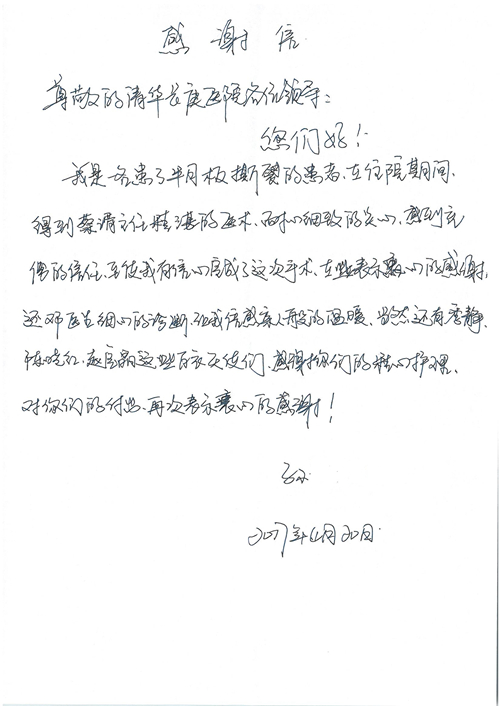 感谢信
尊敬的清华长庚医院各位领导：
您们好！
我是名患了半月板撕裂的患者，在住院期间，
得到蔡谞主任精湛的医术，耐心细致的关心，感到无
偿的信任，至使我有信心完成了这次手术，在此表示衷心的感谢，
还邓医生细心的诊断，给我信感亲人般的温暖，当然还有李静，
陈晓红，赵
这些白衣天使们，感谢你们的精心护理，
对你们的付出，再次表示衷心的感谢！
2017年4月20日